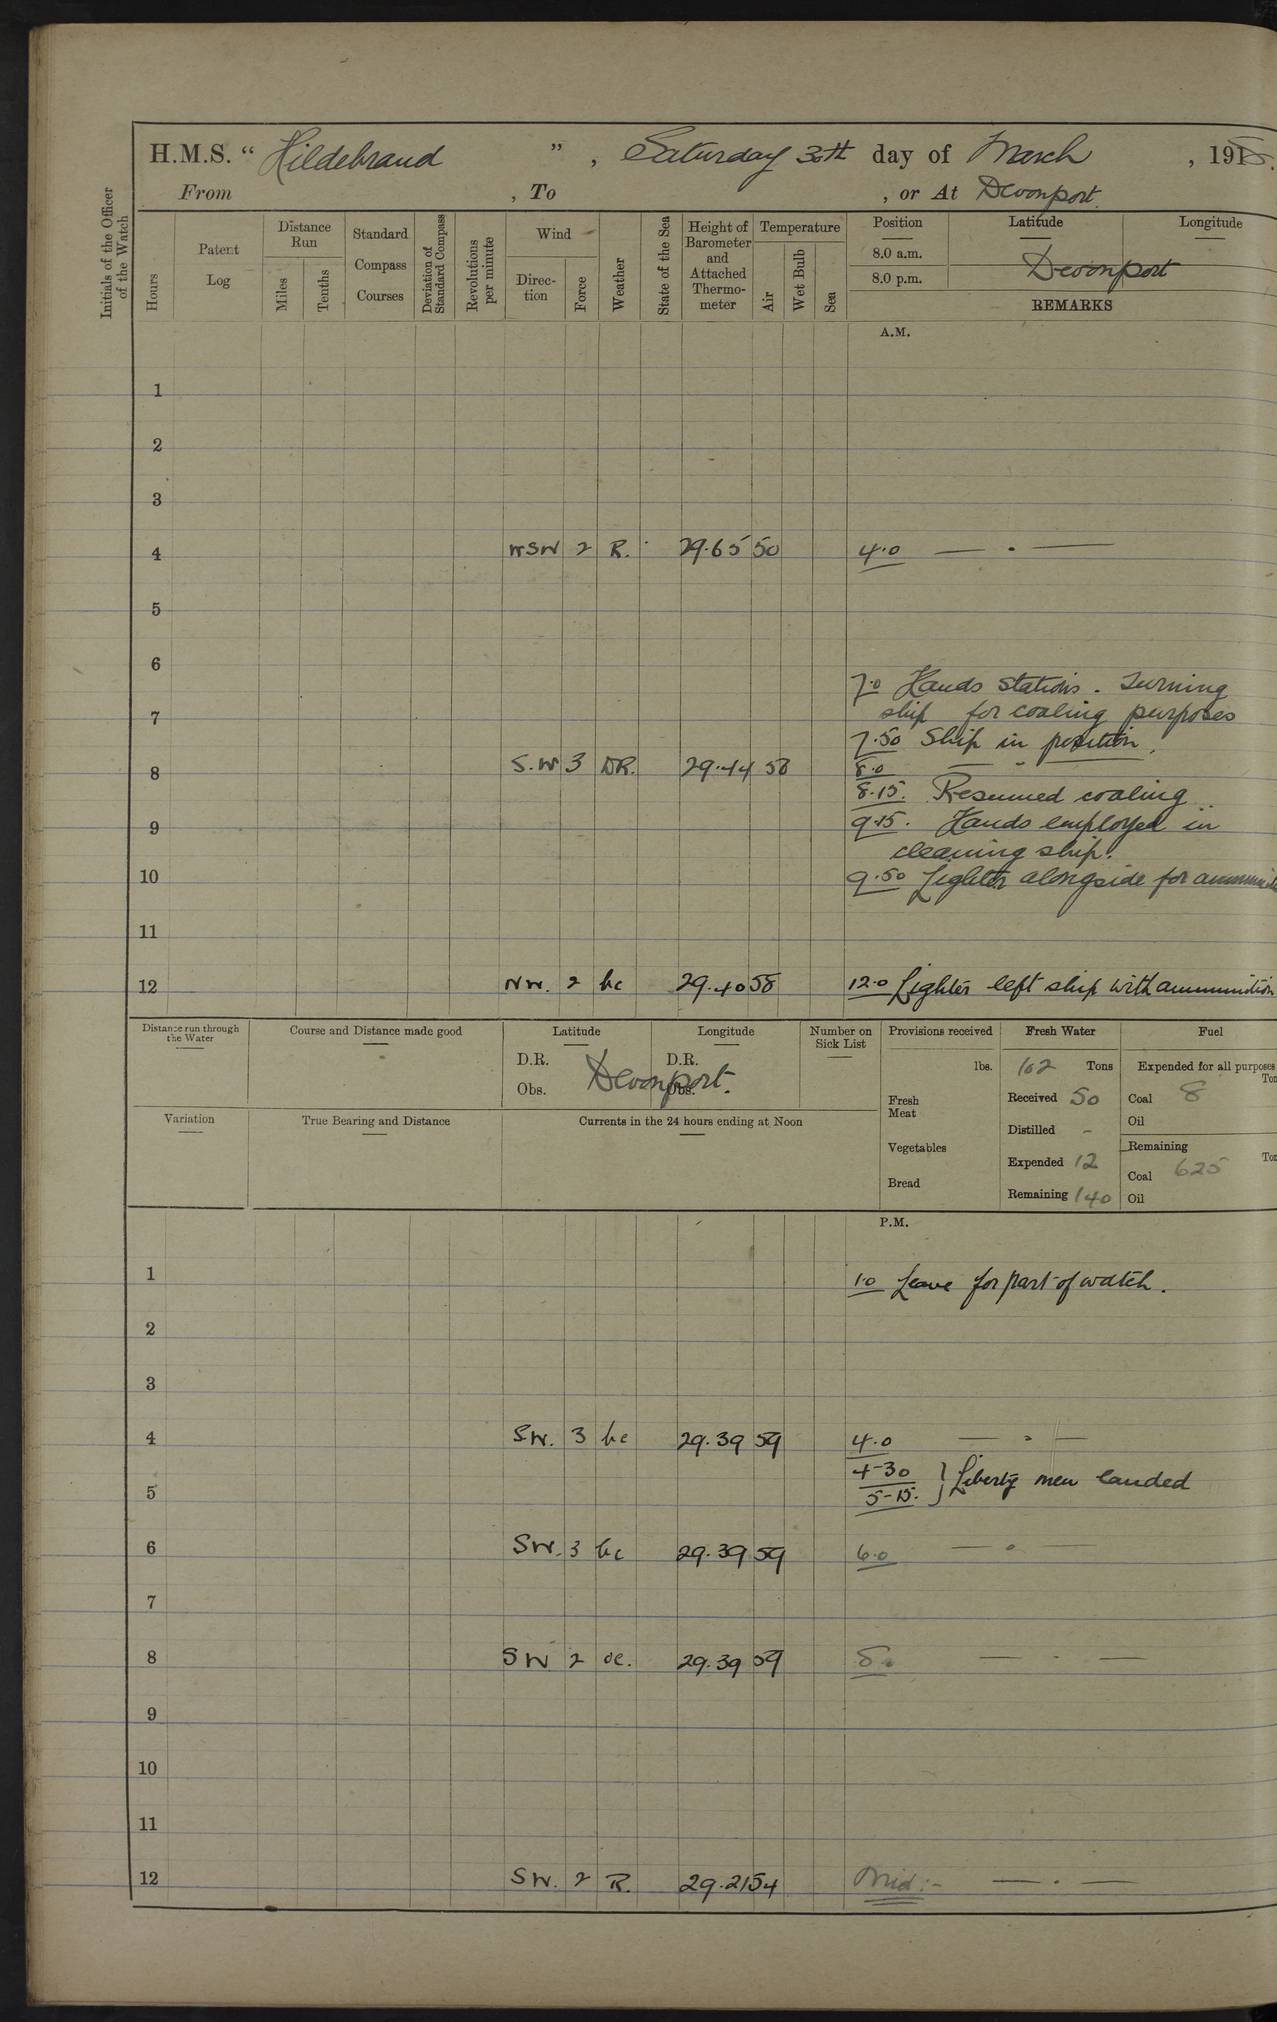 H.M.S. “ Hildebrand ” , Saturday 30th day of March , 1918.
From , To , or At Devonport.
Initials of the Officer of the Watch
Hours
Patent Log
Distance Run
Miles
Tenths
Standard Compass Courses
Deviation of Standard Compass
Revolutions per minute
Wind
Direc-tion
Force
Weather
State of the Sea
Height of Barometer and Attached Thermo-meter
Temperature
Air
Wet Bulb
Sea
Position Latitude Longitude
8.0 a.m.
8.0 p.m. Devonport
REMARKS
A.M.
1
2
3
4 WSW 2 R. 29.65 50 4.0 — . —
5
6
7.0 Hands Stations. Turning
7 ship for coaling purposes
7.50 Ship in position.
8 S.W 3 DR. 29.44 58 8.0 — " —
8.15. Resumed coaling
9 9.15. Hands employed in
cleaning ship.
10 9.50 Lighter alongside for
11
12 NW. 2 bc 29.40 58 12.0 Lighter left ship with ammunition
Distance run through the Water
Course and Distance made good
Latitude Longitude
D.R. D.R.
Obs. Devonport. Obs.
Number on Sick List
Provisions received
lbs.
Fresh Meat
Vegetables
Bread
Fresh Water
102 Tons
Received 50
Distilled -
Expended 12
Remaining 140
Fuel
Expended for all purposes
Ton
Coal 8
Oil
Remaining
Ton
Coal 625
Oil
Variation
True Bearing and Distance
Currents in the 24 hours ending at Noon
P.M.
1 1.0 Leave for part of watch.
2
3
4 SW. 3 bc 29.39 59 4.0 — " —
4-30 } Liberty men landed
5 5-15.
6 SW. 3 bc 29.39 59 6.0 — " —
7
8 SW 2 oc. 29.39 59 8. — . —
9
10
11
12 SW. 2 R. 29.21 54 Mid:- — . —